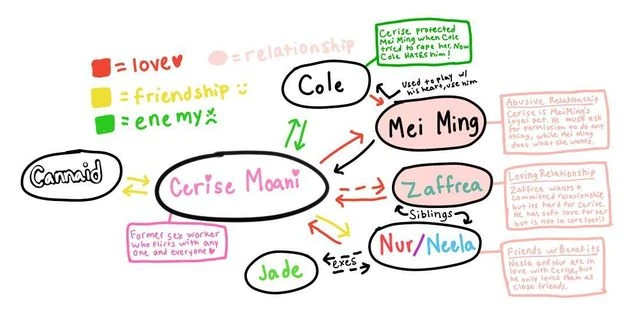 = love
= relationship
= friendship
= enemy
Cerise protected
Mei Ming when Cole
tried to rape her. Now
Cole HATES him!
Cole
Used to play w/
his heart, use him
Mei Ming
Abusive Relationship
Cerise is MeiMing's
loyal pet. He must ask
for permission to do any
thing, while Mei Ming
does what she wants.
Cannaid
Cerise Moani
Zaffrea
Loving Relationship
Zaffrea wants a
committed relationship
but its hard for Cerise.
He has soft love for her
but is not in love (yet!)
Siblings
Former sex worker
who flirts with any
one and everyone
Nur/Neela
Friends w/ Benefits
Neela and Nur are in
love with Cerise, but
he only loves them as
close friends.
Jade
exes